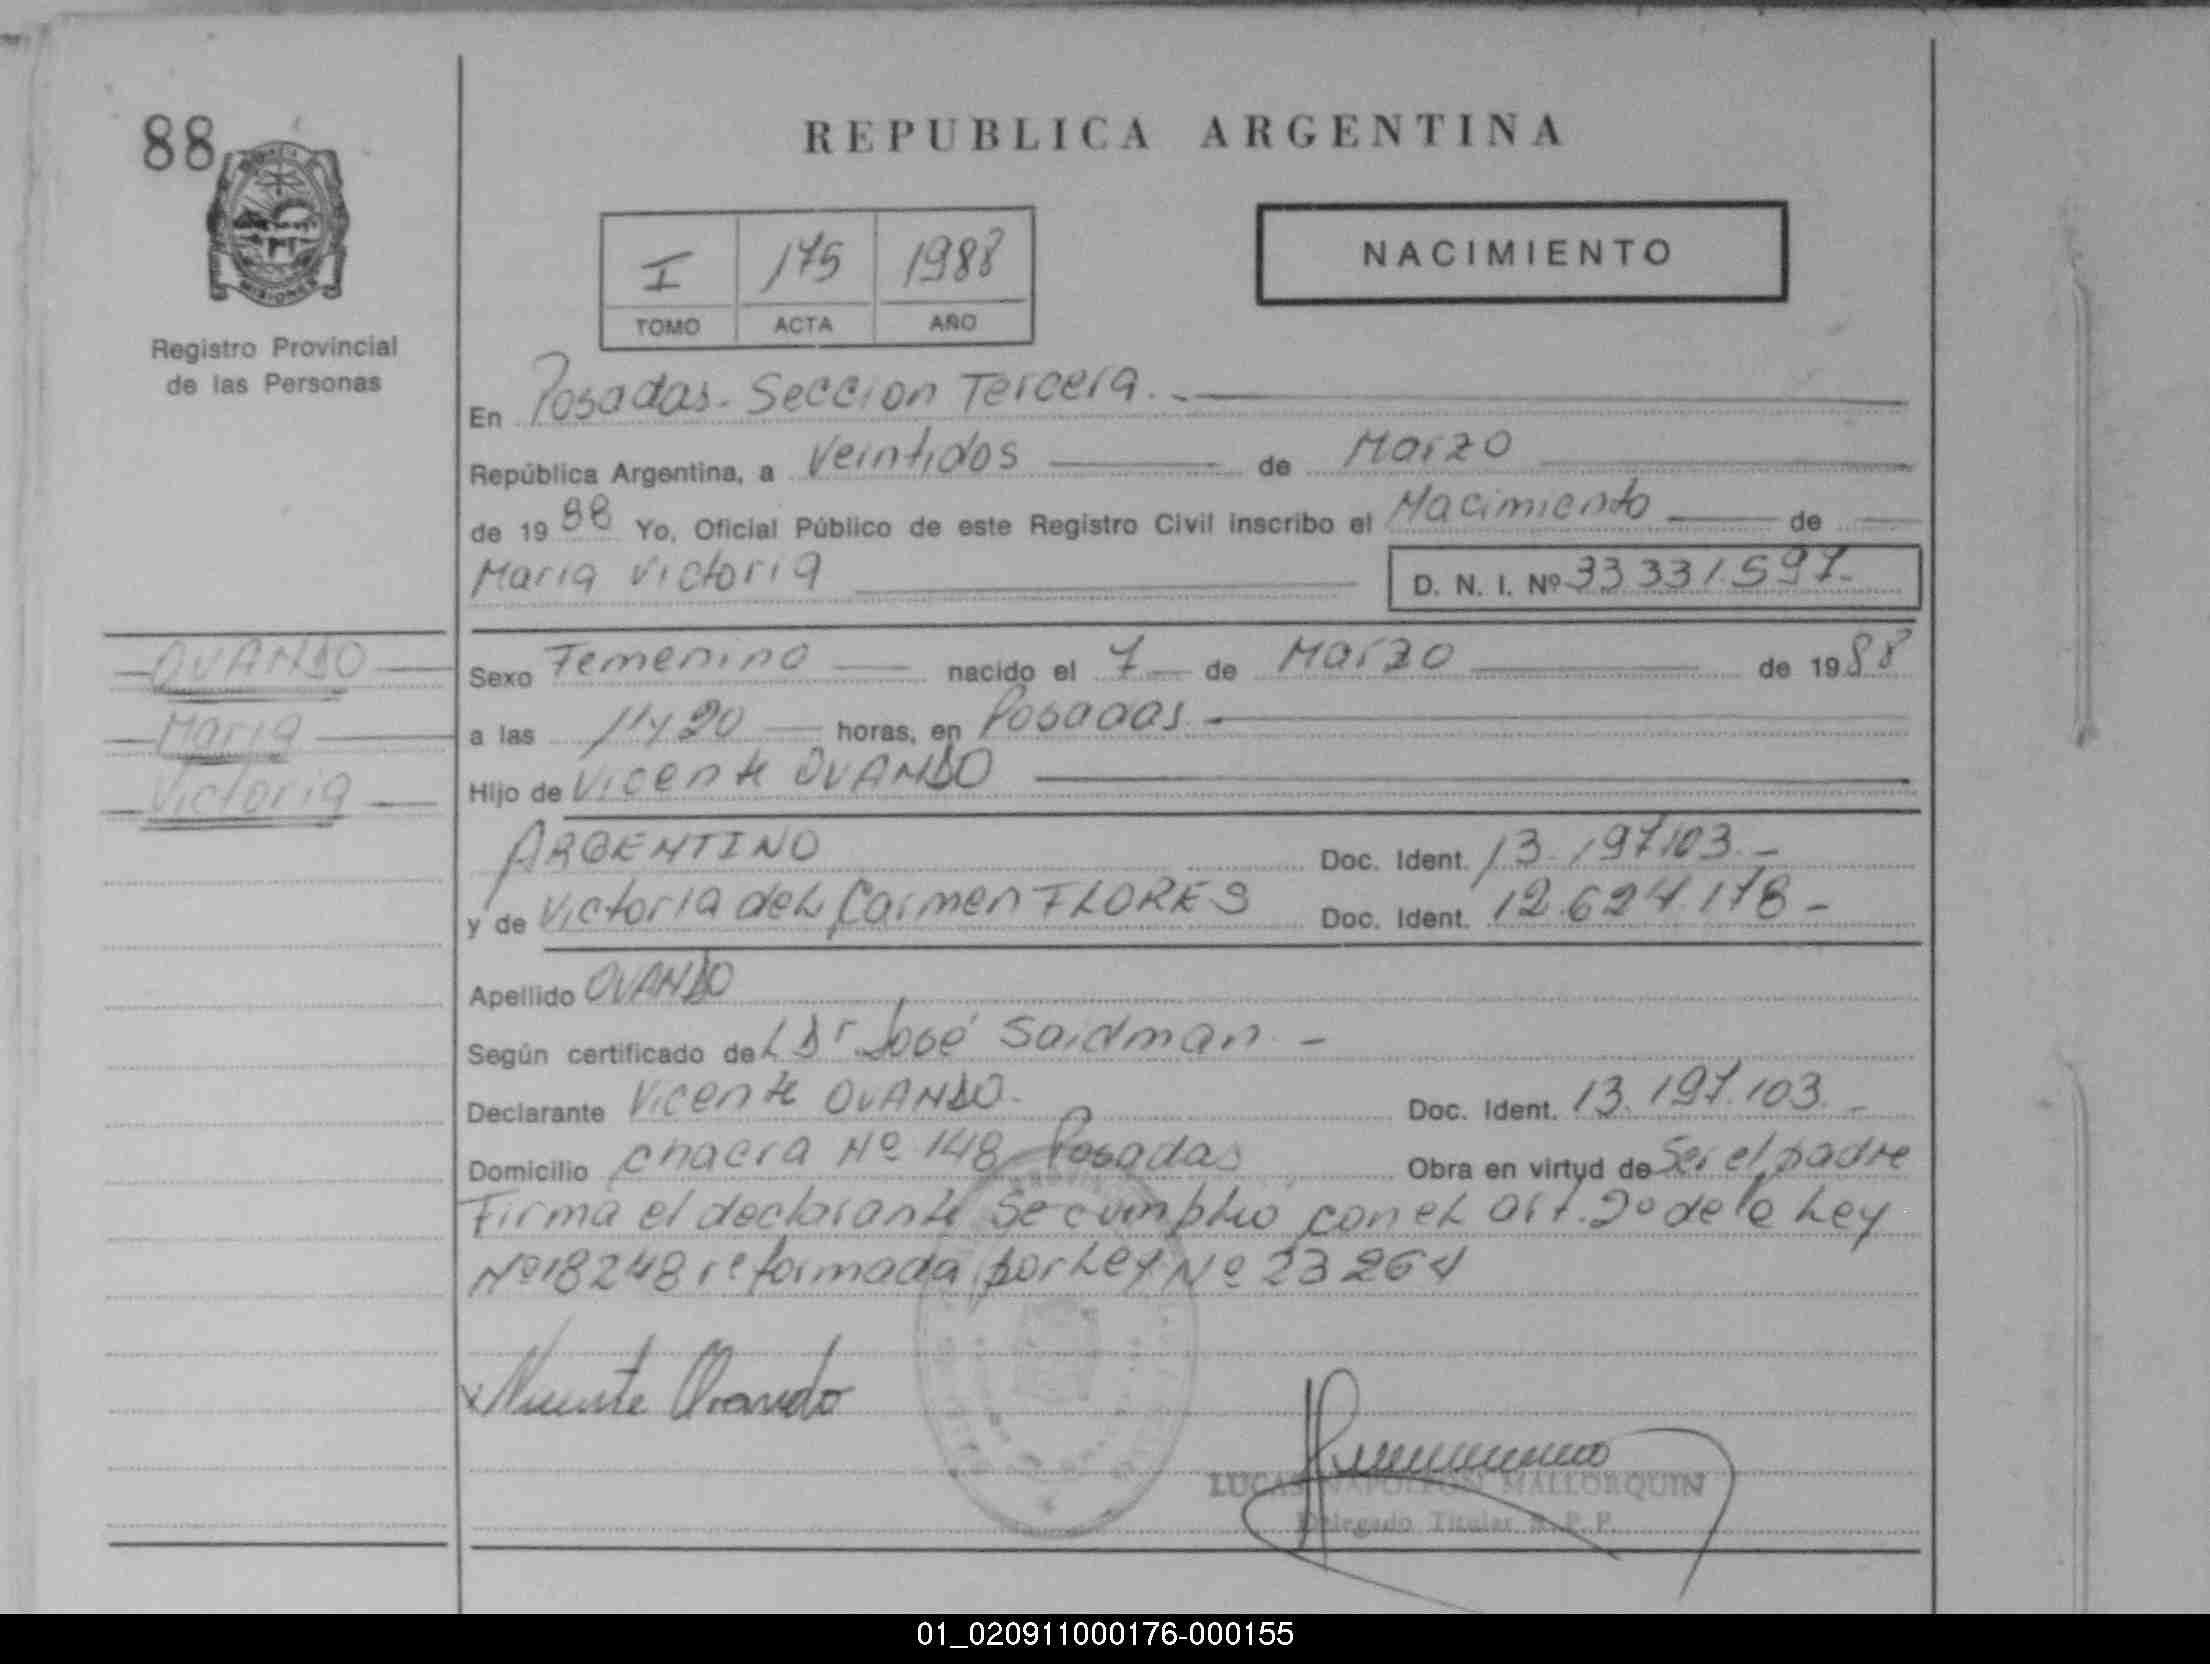 88
MISIONES
Registro Provincial
de las Personas
REPUBLICA ARGENTINA
I 175 1988
TOMO ACTA AÑO
NACIMIENTO
En Posadas. Seccion Tercera.
República Argentina, a Veintidos de Marzo
de 1988 Yo, Oficial Público de este Registro Civil inscribo el Nacimiento de
Maria Victoria D. N. I. Nº 33 331.597.-
OVANDO
Maria
Victoria
Sexo Femenino nacido el 7 de Marzo de 1988
a las 11 y 20 horas, en Posadas.
Hijo de Vicente OVANDO
ARGENTINO Doc. Ident. 13.197.103.-
y de Victoria del Carmen FLORES Doc. Ident. 12.624.178-
Apellido OVANDO
Según certificado del Dr José Saidman.-
Declarante Vicente OVANDO. Doc. Ident. 13.197.103.-
Domicilio chacra Nº 148 Posadas Obra en virtud de Ser el padre
Firma el declarante Se cumplio con el art. 2º de la Ley
Nº 18248 reformada por Ley Nº 23264
Vicente Ovando
LUCAS NAPOLEON MALLORQUIN
Delegado Titular R. P. P.
01_020911000176-000155